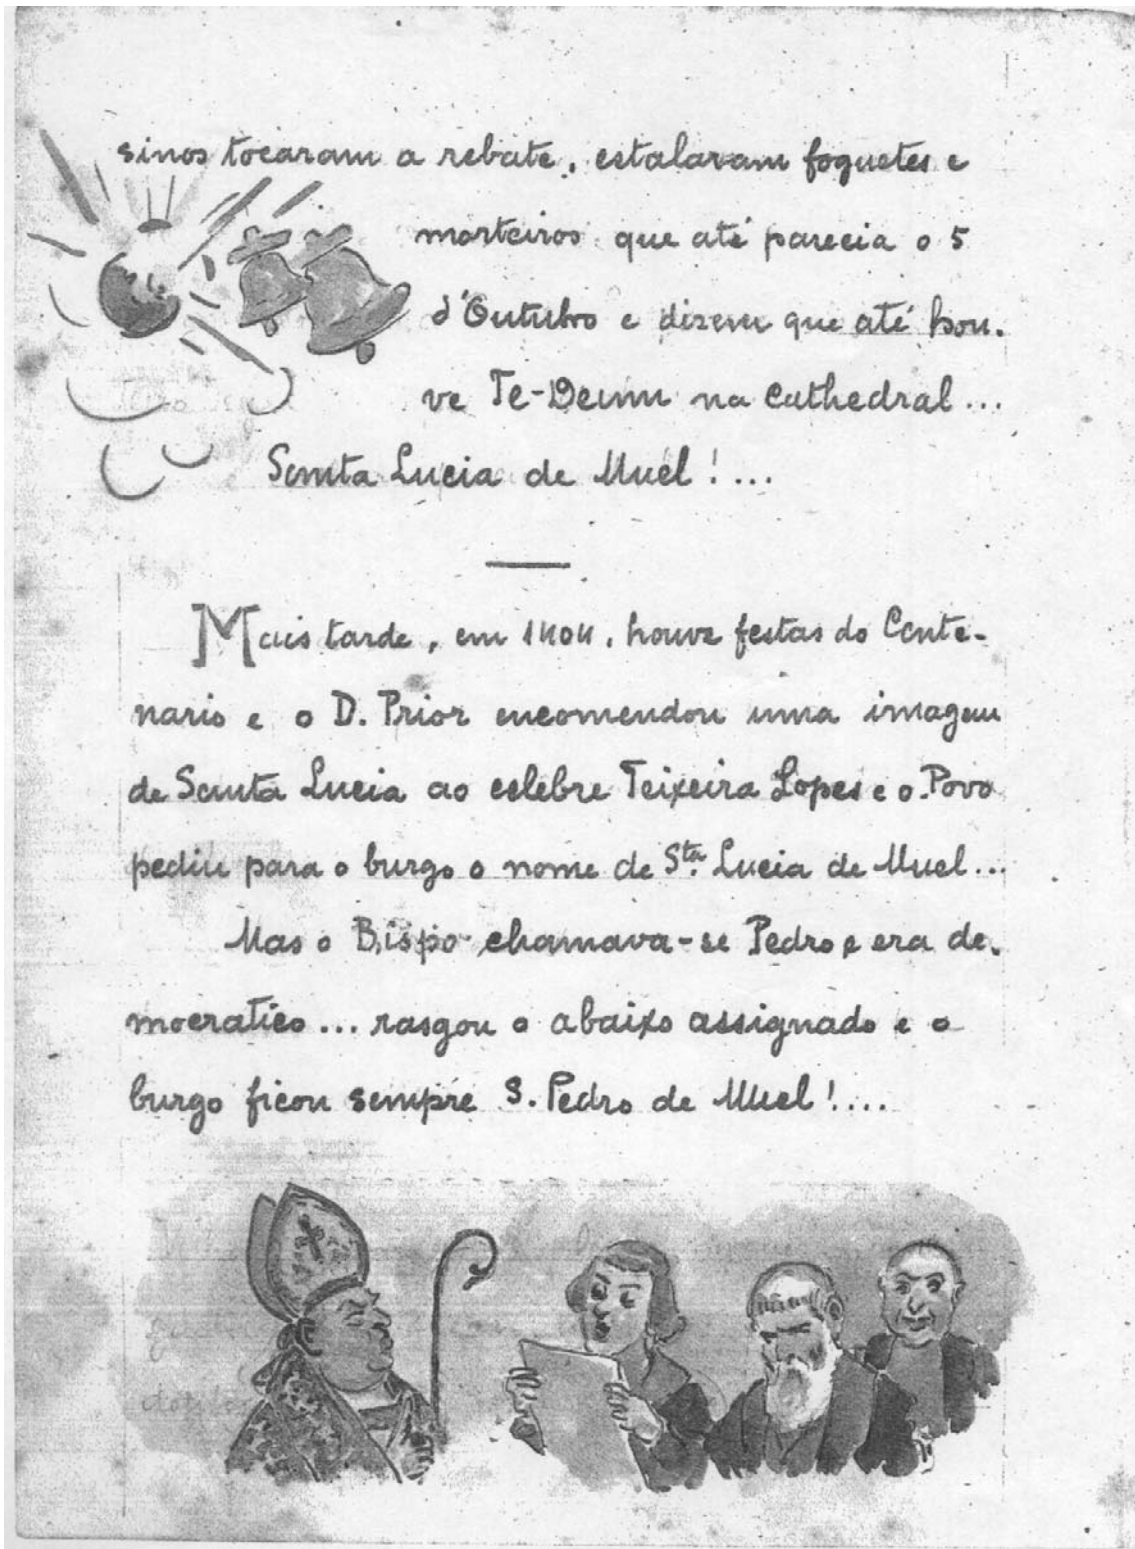 sinos tocaram a rebate, estalaram foguetes e
morteiros que até parecia o 5
d'Outubro e dizem que até hou-
ve Te-Deum na Cathedral...
Santa Lucia de Muel!...
Mais tarde, em 1404, houve festas do Cente-
nario e o D. Prior encomendou uma imagem
de Santa Lucia ao celebre Teixeira Lopes e o Povo
pediu para o burgo o nome de Sta. Lucia de Muel...
Mas o Bispo chamava-se Pedro e era de-
mocratico... rasgou o abaixo assignado e o
burgo ficou sempre S. Pedro de Muel!....